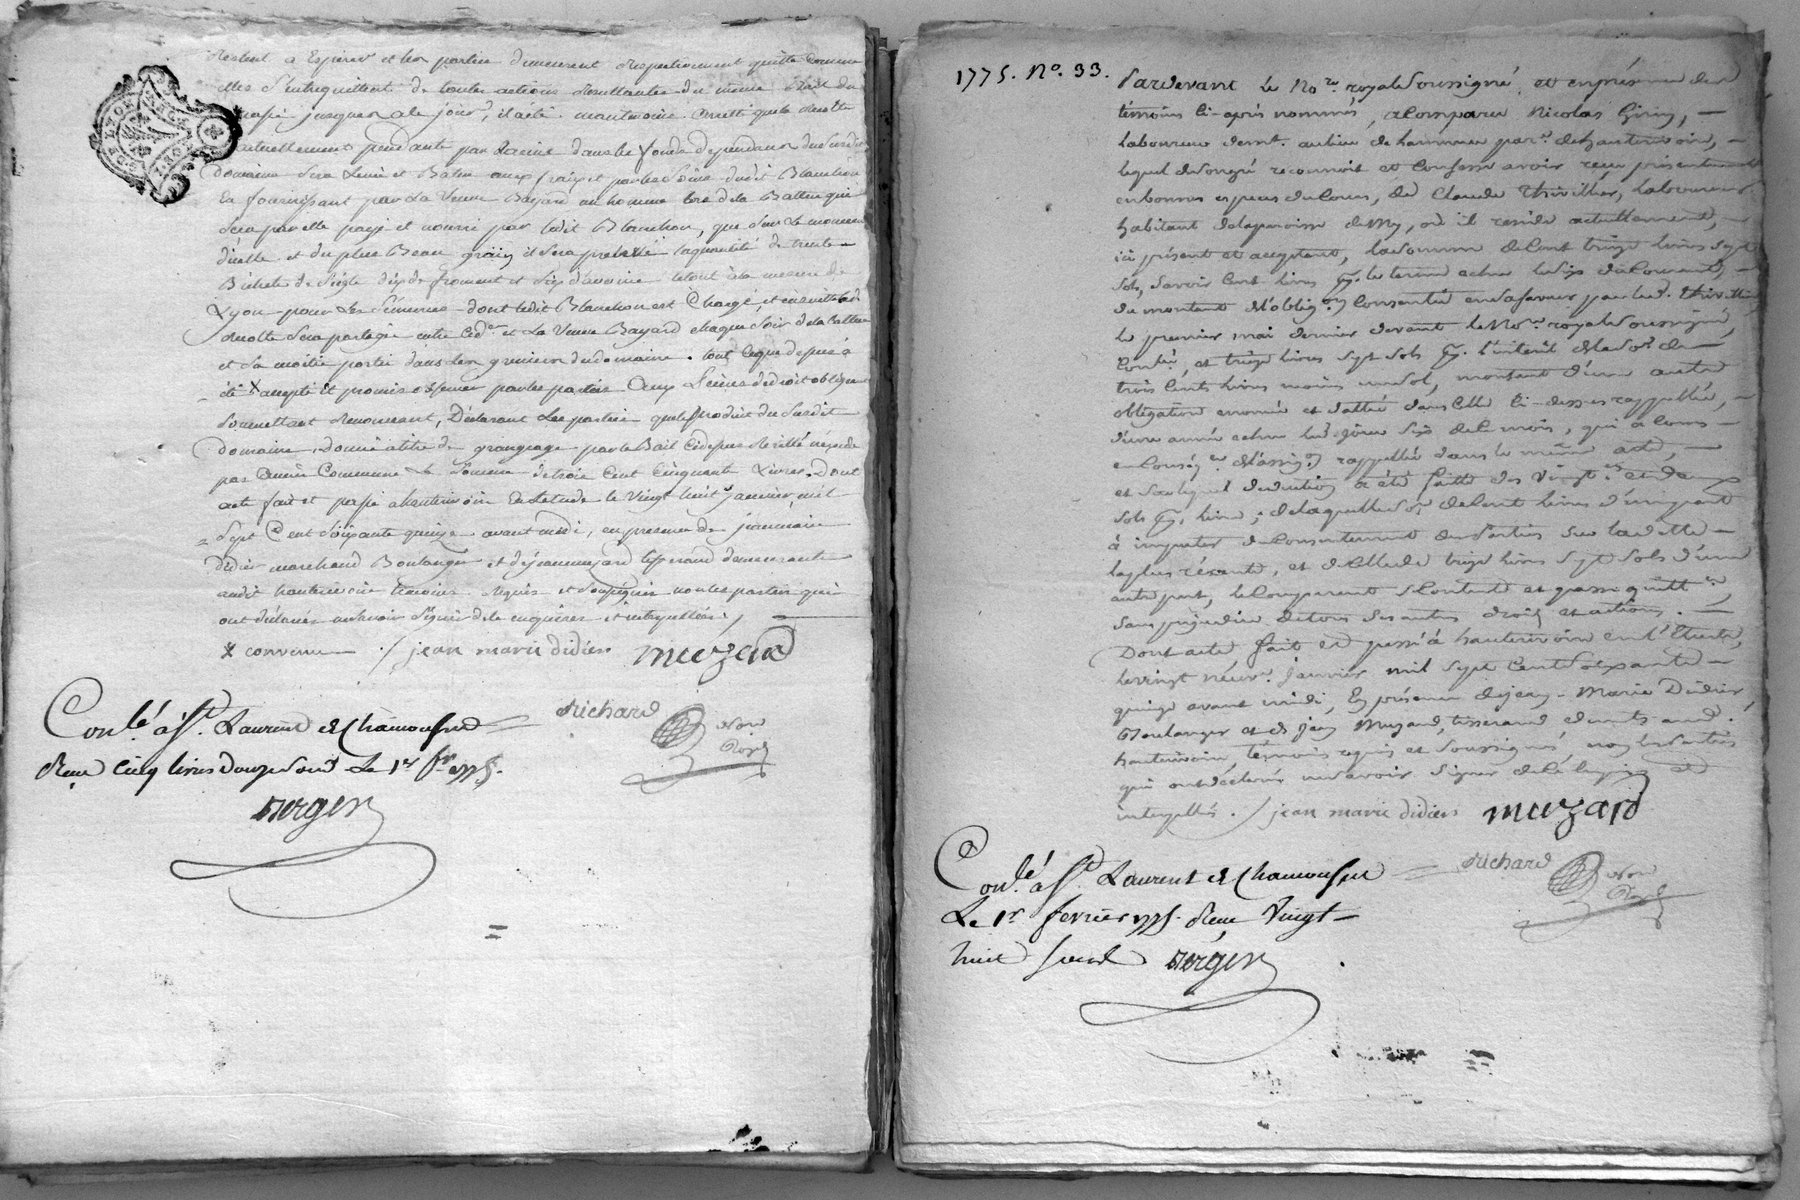 restent a Expirer et les parties demeurent respectivement quitte comme
elles s'entrequittent de toutes actions resultantes du même Bail du
passé jusques a ce jour, il a été maintenüe arretté que la recolte
actuellement pendante par racine dans les fonds dependans du susdit
domaine sera Levée et Batüe aux fraix et par les soins dudit Blanchon
En fournissant par La Veuve Bayard un homme lors de la Batture qui
sera par elle payé et nourri par ledit Blanchon, que sur le monceau
d'icelle et du plus Beau grain il sera prelevé la quantité de trente
Bichets de seigle dix de froment et six d'avoine le tout à la mesure de
Lyon pour Les semences dont ledit Blanchon est Chargé, et ensuitte lad.
recolte sera partagée entre led. et La Veuve Bayard chaque soir de la batture
et sa moitié portée dans les greniers du domaine. tout ce que dessus a
été * accepté et promis observer par les parties aux peines de droit obligeant
soumettant renonceant, Déclarant Les parties que le produit du susdit
domaine, donné a titre de grangeage par le Bail cidessus resilié
par année Commune La somme de trois Cent Cinquante Livres. Dont
acte fait et passé a hauterivoire En L'etude le vingt huit janvier mil
sept Cent soixante quinze avant midi, en presence de jean marie
didier marchand Boulanger et de jean muzard tisserand demeurants
audit hauterivoire temoins requis et soussignés non les parties qui
ont déclarés ne sçavoir signer de ce enquises et interpellées /.
* convenu / jean marie didier muzard
richard
Not.re
Royal
Con.lé à St. Laurent de Chamousset
Receu cinq livres douze sous Le 1er fr. 1775.
Berger
1775. No. 33.
Pardevant le No.re royal soussigné, et en présence des
témoins ci-après nommés, a comparu Nicolas Giriny,
laboureur demt. au lieu de hammeau par.se de hauterivoire,
lequel de son gré reconnoit et confesse avoir reçu présentement
en bonnes espèces du cours, de Claude Thivillier, laboureur
habitant de la paroisse de Mey, où il reside actuellement,
ici présent et acceptant, la somme de Cent treize livres sept
sols, savoir Cent livres pr. le terme echu le six du Courant,
du montant de l'oblig.on Consentie en sa faveur par led. thivillier
le premier mai dernier devant le No.re royal soussigné,
Con.lée, et treize livres sept sols pr. l'interêt de la so.e de
trois cents livres moins un sol, montant d'une autre
obligation enoncée et dattée dans celle ci-dessus rappellée,
d'une année echue led. jour six de ce mois, qui a couru
en conség.ce de l'assig.on rappellée dans le même acte,
et sur lequel deduction a été faitte des vingt.es et deux
sols pr. livre; de laquelle so.e de Cent livres d'une part
à imputer du consentement des Parties sur la dette
la plus récente, et de celle de treize livres sept sols d'une
autre part, le Comparant se contente et passe quitt.ce,
sans préjudice de tous ses autres droits et actions.
Dont acte, fait et passé à hauterivoire en l'Etude,
le vingt neuv.e Janvier mil sept Cent soixante
quinze avant midi, En présence de jean-Marie Didier,
Boulanger et de Jean Muzard, tisserand, demts aud.
hauterivoire, témoins requis et soussignés, non les Parties
qui ont déclarés ne savoir signer de ce enquises et
interpellés. / jean marie didier muzard
richard
Not.re
Royal
Con.lé à St. Laurent de Chamousset
Le 1er fevrier 1775. Receu Vingt
huit sous
Berger